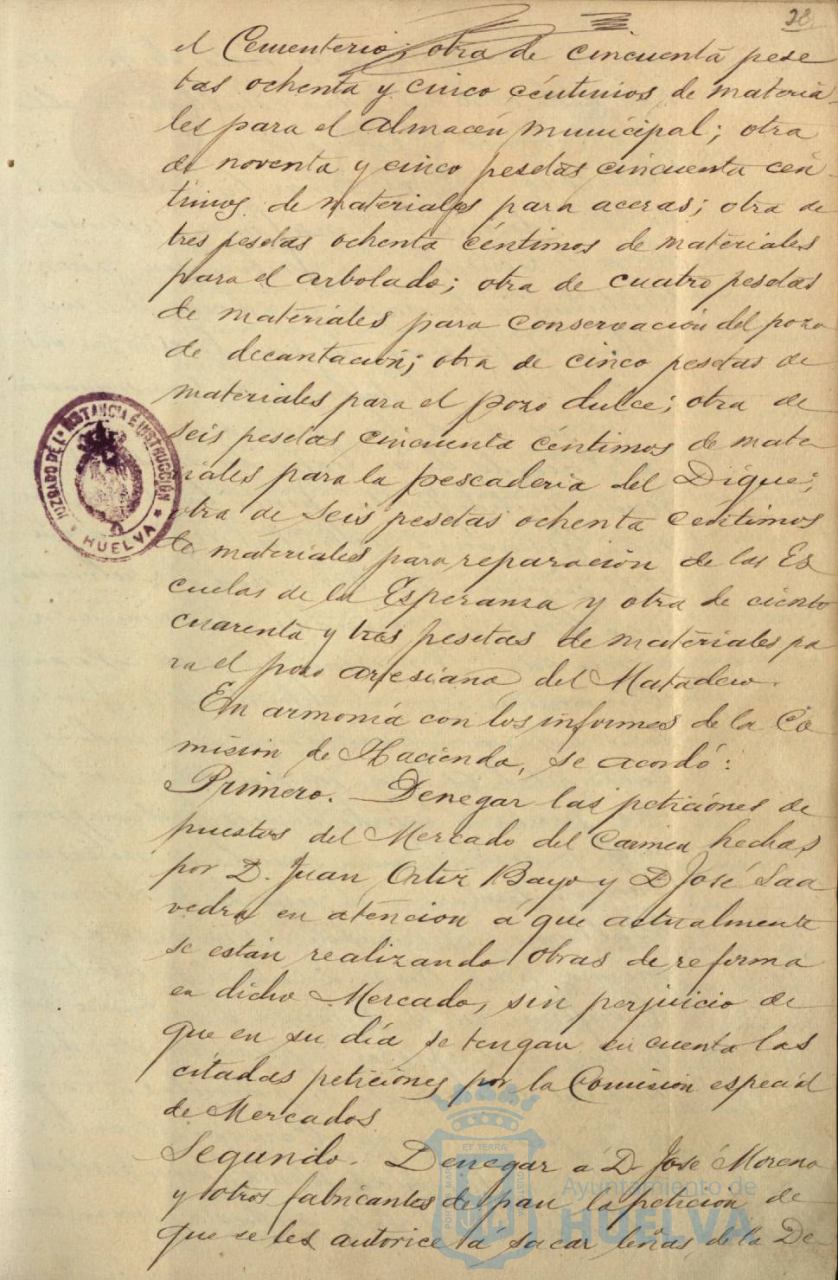 28
el Cementerio; otra de cincuenta pese
tas ochenta y cinco céntimos de materia
les para el almacén municipal; otra
de noventa y cinco pesetas cincuenta cén-
timos de materiales para aceras; otra de
tres pesetas ochenta céntimos de materiales
para el arbolado; otra de cuatro pesetas
de materiales para conservación del pozo
de decantación; otra de cinco pesetas de
materiales para el pozo dulce; otra de
seis pesetas cincuenta céntimos de mate
riales para la pescaderia del Dique;
otra de seis pesetas ochenta centimos
de materiales para reparación de las Es
cuelas de la Esperanza y otra de ciento
cuarenta y tres pesetas de materiales pa
ra el pozo artesiano del Matadero.
En armonía con los informes de la Co
misión de Hacienda, se acordó:
Primero. Denegar las peticiones de
puestos del Mercado del Carmen hechas
por D. Juan Ortiz Bayo y D José Saa
vedra en atencion á que actualmente
se están realizando obras de reforma
en dicho Mercado, sin perjuicio de
que en su día se tengan en cuenta las
citadas peticiones por la Comisión especial
de Mercados.
Segundo. Denegar á D. José Moreno
y otros fabricantes de pan la peticion de
que se les autorice á sacar leñas de la De-
JUZGADO DE 1ª INSTANCIA E INSTRUCCIÓN
* HUELVA *
Ayuntamiento de
HUELVA